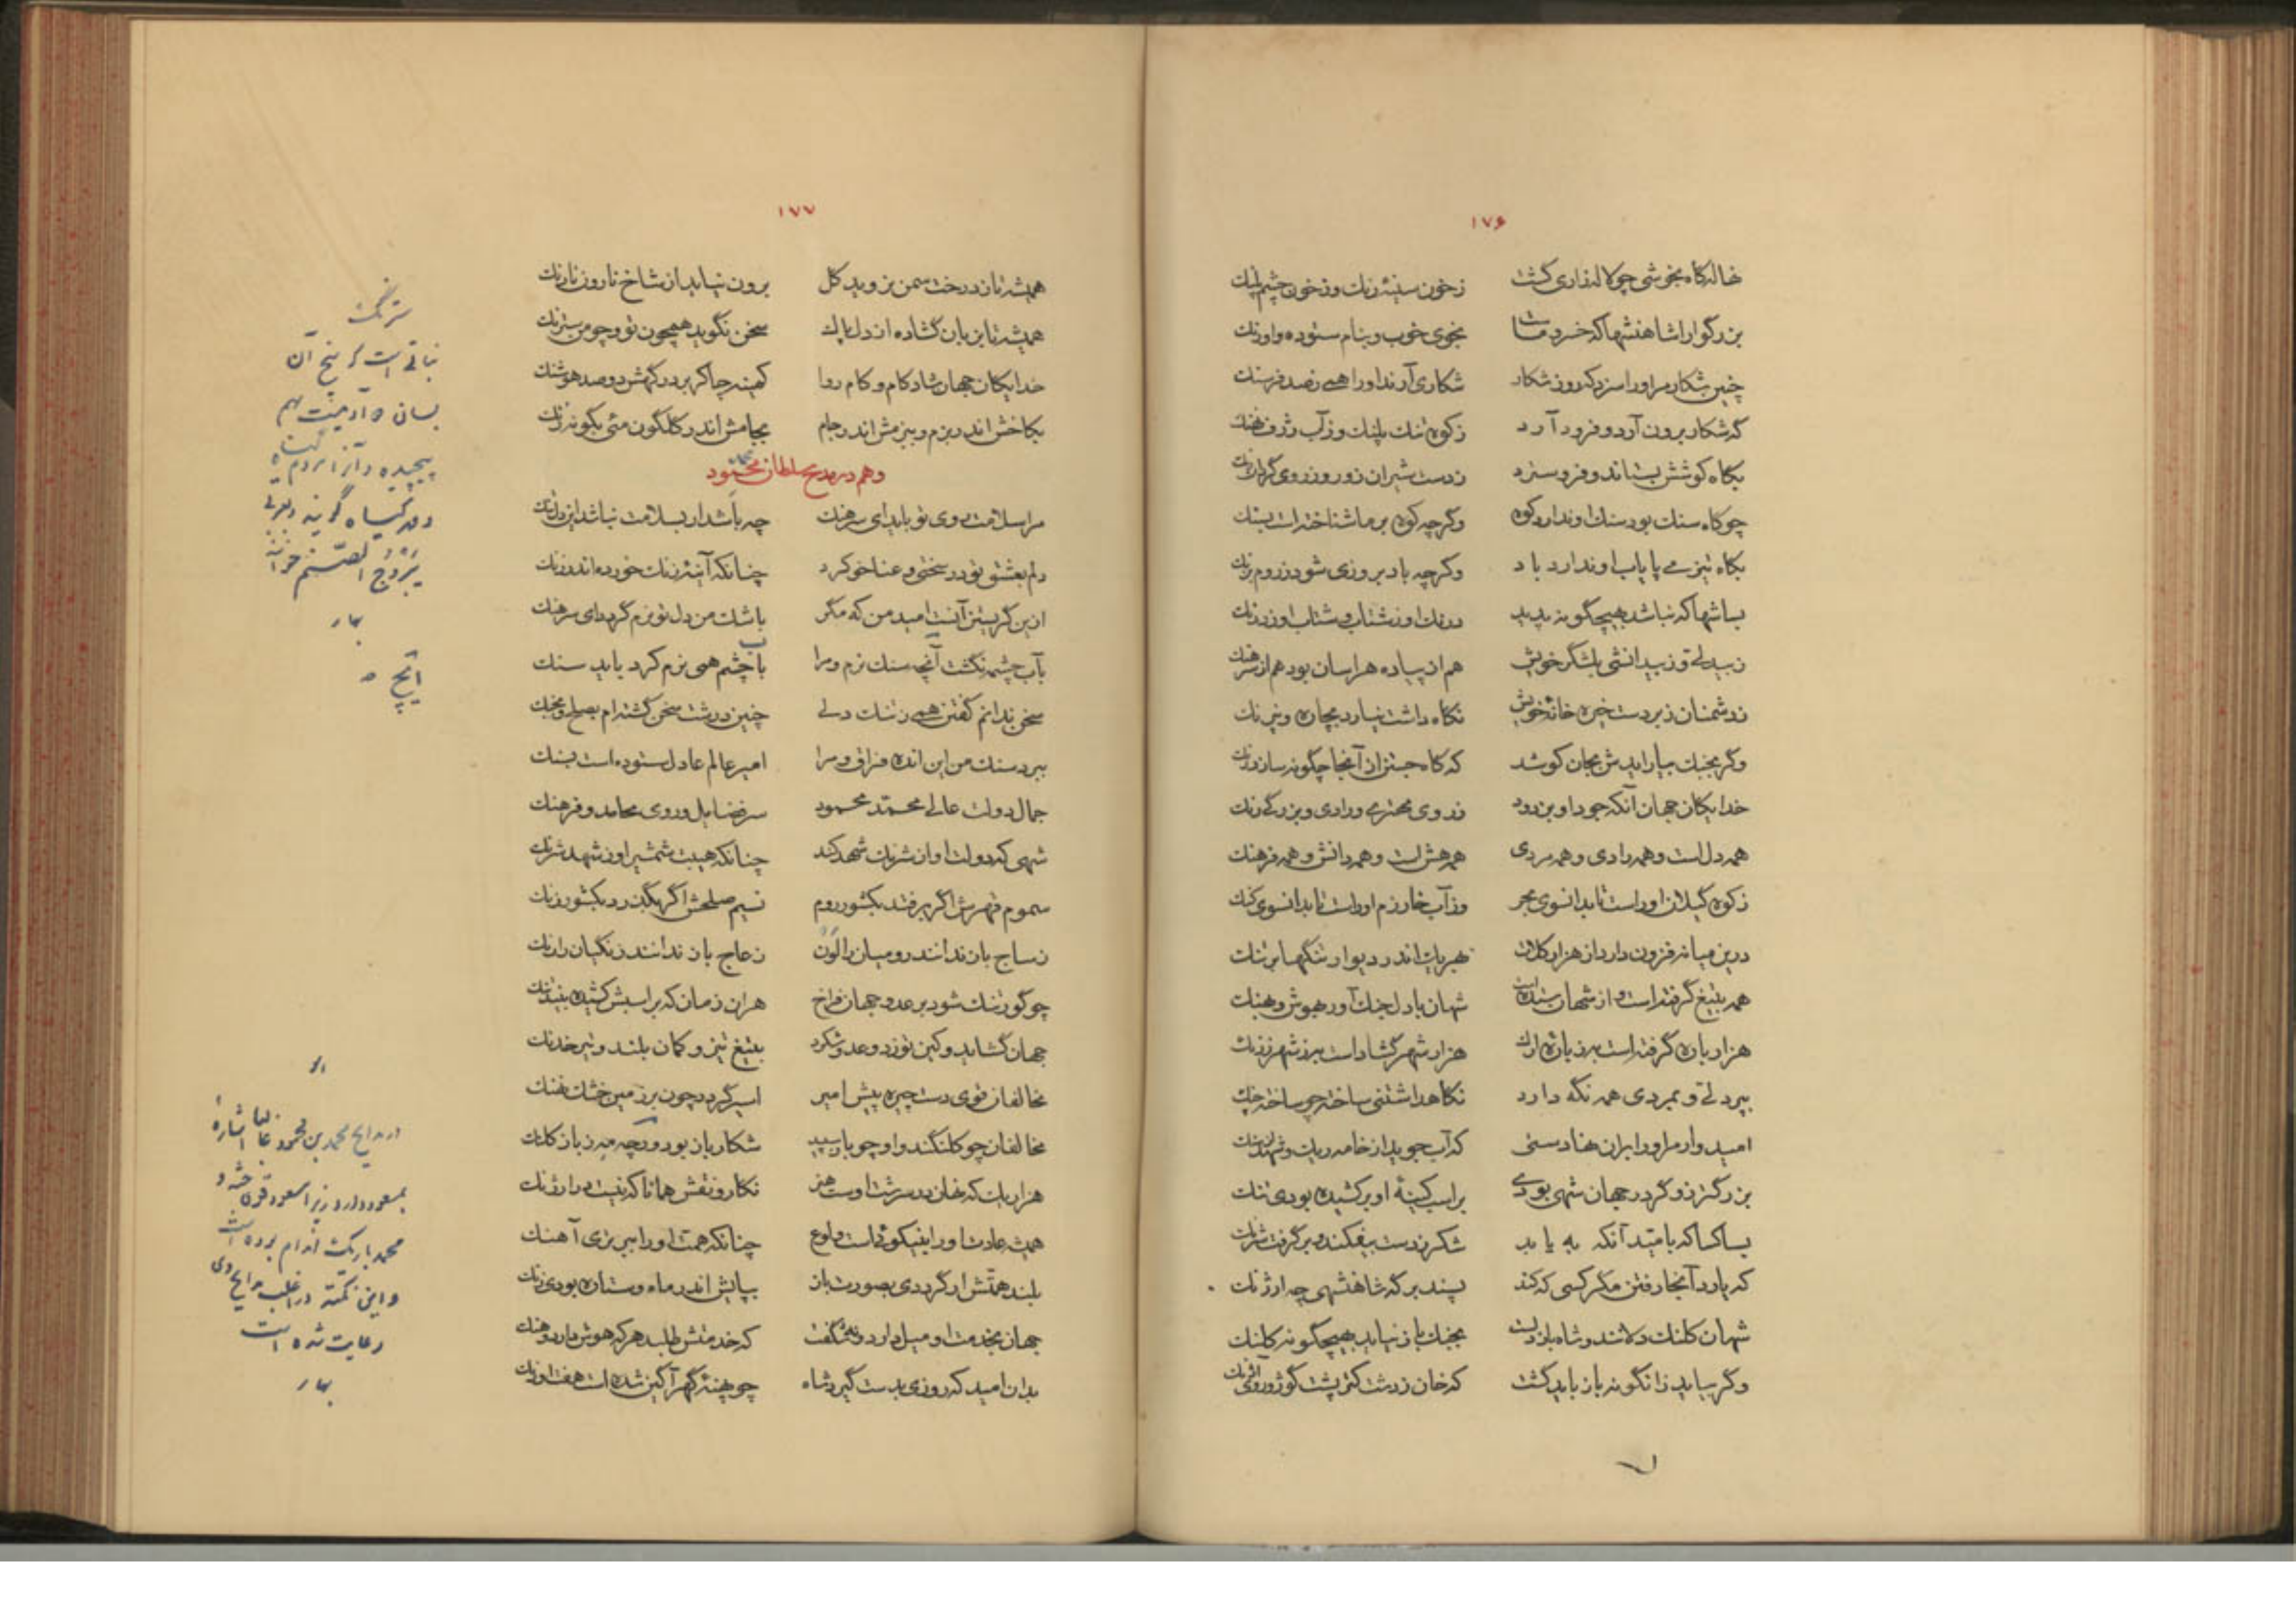 ۱۷۶
نخاله‌گاه بخوشی چو لاله‌زاری گشت زخون سینهٔ رنك و زخون چشم پلنك
بزرگوارا شاهنشها که خسرو ماست بخوی خوب و بنام ستوده و اورنك
چنین شکار مر او را سزد که روز شکار شکاری آرند او را همی ز صد فرسنك
گه شکار برون آرد و فرود آرد ز کوه تند پلنك و ز آب ژرف نهنك
بگاه کوشش بستاند و فرو سترد ز دست شیران زور و ز روی گردان رنك
چو کاه سنك بود سنك او ندارد کوه وگرچه کوه بر ما شناخته است بسنك
بگاه تیزی پایاب او ندارد باد وگرچه باد بروزی شود ز روم بزنك
بسا شها که نباشد بهیچگونه پدید درنك او ز شتاب و شتاب او ز درنك
ز بیدلی و ز بیدانشی بلشگر خویش هم از پیاده هراسان بود هم از سرهنك
ز دشمنان زبردست خیره خانهٔ خویش نگاه داشت نیارد بچاره و نیرنك
وگر بجنك نیاراید ش بجان کوشد که گاه جستن از آنجا چگونه سازد رنك
خدایگان جهان آنکه جود او بزدود ز روی محترمی و رادی و بزرگی زنك
همه دل است و همه رادی و همه مردی همه هش است و همه دانش و همه فرهنك
ز کوه گیلان او راست تا بدانسوی بحر وز آب خارزم او راست تا بدانسوی گنك
درین میانه فزون دارد از هزار کلات بهر یك اندر دیوار
همه بتیغ گرفته است و از شهان ستده است شهان با دل جنك آور و هوش و هنك
هزار باره گرفته است به ز بارهٔ ارك هزار شهر گشاده است به ز شهر زرنك
بپردلی و بمردی همه نگه دارد نگاهداشتنی ساخته چو ساخته چنك
امیدوار مر او را بران نهاد ستی که آب جوید از خامه ریك و
بزرگتر ز و گر در جهان شهی بودی بر اسب کینهٔ او بر کشیده بودی تنك
بسا کسا که بامید آنکه به یابد شکر ز دست بیفکند و بر گرفت شرنك
که یارد آنجا رفتن مگر کسی که کند پسند بر گه شاهنشهی چه ارژنك
شهان کلنك دلانند و شاه باز دلست بجنك باز نیاید بهیچگونه کلنك
وگر بیاید زانگونه باز باید گشت که خان ز دشت کتر پشت گوژ و روی آژنك
۱۷۷
همیشه تا ز درخت سمن بروید گل برون نیاید از شاخ نارون نارنك
همیشه تا بزبان گشاده از دل پاك سخن نگوید همچون تو و چو من سترنك
خدایگان جهان شاد کام و کام روا کمینه چاکر بر درگهش دو صد هوشنك
بکاخش اندر بزم و ببزمش اندر جام بجامش اندر گلگون مئی بگونه زنك
وهم در مدیح سلطان محمود
مرا سلامت روی تو باید ای سرهنك چه باشد ار بسلامت نباشد این دل تنك
دلم بعشق تو در سختی و عنا خو کرد چنانکه آینهٔ زنك خورده اندر زنك
ازین گریستن آنست امید من که مگر باشك من دل تو نرم گردد ای سرهنك
بآب چشمه نگشت آنچه سنك نرم و مرا بآب چشم همی نرم کرد باید سنك
سخن ندانم گفتن همی ز تنك دلی چنین درشت سخن گشته ام بصلح و بجنك
ببرد سنك من این انده فراق و مرا امیر عالم عادل ستوده است بسنك
جمال دولت عالی محمد محمود سر فضایل و روی محامد و فرهنك
شهی که دولت او از شرنك شهد کند چنانکه هیبت شمشیر او ز شهد شرنك
سموم قهرش اگر بر فتد بکشور روم نسیم صلحش اگر بگذرد بکشور زنك
ز ساج باز ندانند رومیان را لون ز عاج باز ندانند زنگیان را رنك
چو گور تنك شود بر عدو جهان فراخ هران زمان که بر اسبش کشیده بیند تنك
جهان گشاید و کین توزد و عدو شکرد بتیغ تیز و کمان بلند و تیر خدنك
مخالفان قوی دست چیره پیش امیر اسیر گردد چون بر زمین خشك نهنك
مخالفان چو کلنگند و او چو باز سپید شکار باز بود ورچه مه ز باز کلنك
هزار یك که نهان در سرشت اوست هنر نگار و نقش همانا که نیست در ارژنك
همیشه عادت او را بنیکوئی است ولوع چنانکه همت او را ببرتری آهنك
بلند همتش ار گرددی بصورت باز بپایش اندر ماه و ستاره بودی زنك
جهان بخدمت او میل دارد و نه شگفت که خدمتش طلبد هر که هوش دارد و هنك
بدان امید که روزی بدست گیرد شاه چو بهنهٔ گهر آگین شده است هفت اورنك
سترنگ
نباتی است که بیخ آن
بسان دو آدمیست بهم
پیچیده و آنرا مردم گیاه
و مهر گیاه گویند و بعربی
یبروح الصنم خوانند
بهار
در مدایح محمد بن محمود غالبا اشاره
بمسعود دارد زیرا مسعود قوی جثه و
محمد باریك اندام بوده است
و این نکته در اغلب مدایح وی
رعایت شده است
بهار